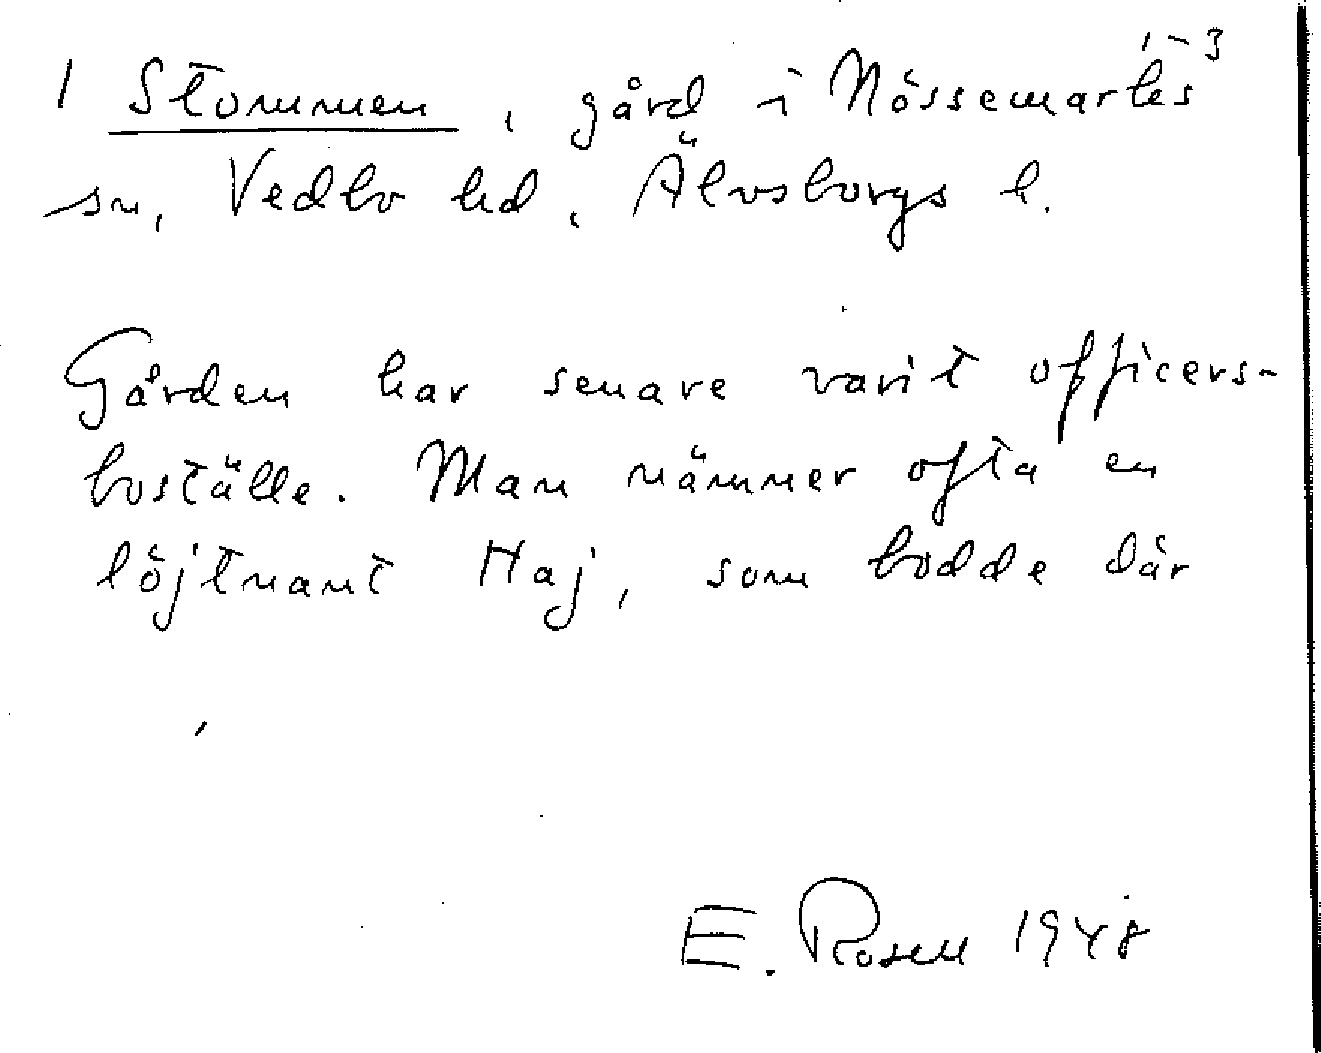 1-3
1 Stommen, gård i Nössemarks
sn, Vedbo hd, Älvsborgs l.
Gården har senare varit officers-
boställe. Man nämner ofta en
löjtnant Haj, som bodde där
E. Rosell 1948